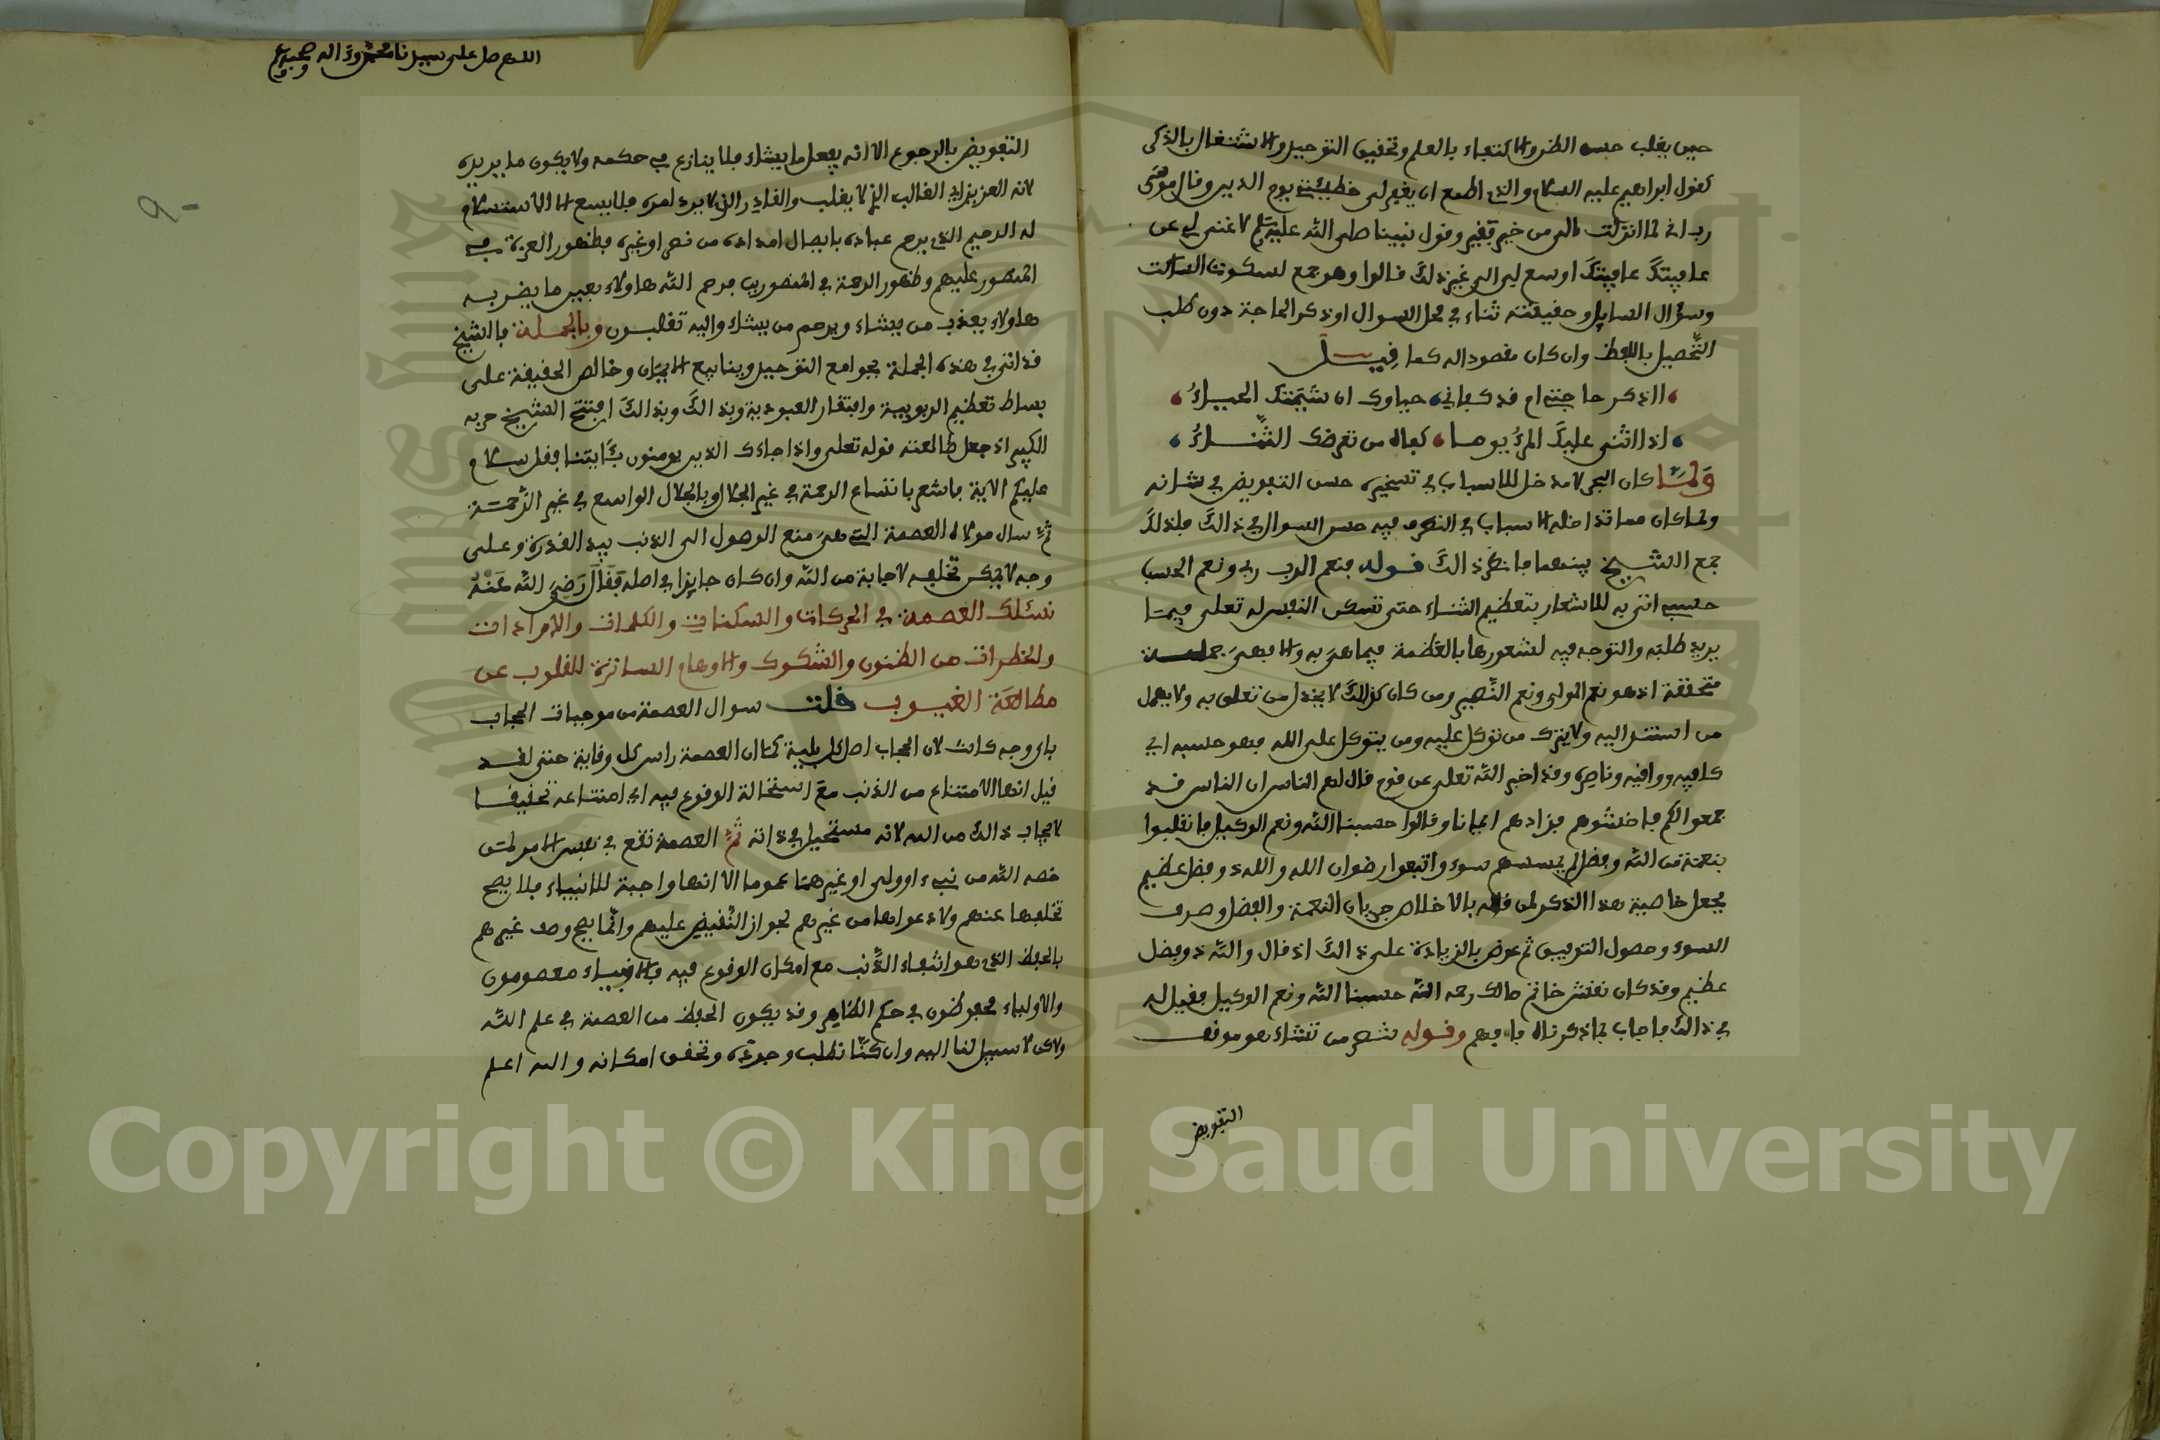 حين يغلب حسن الظن والاكتفاء بالعلم وتحقيق التوحيد والاشتغال بالذكر
كقول ابراهيم عليه السلام والذي اطمع ان يغفر لي خطيئتي يوم الدين وقال موسى
رب اني لما انزلت الي من خير فقير وقول نبينا صلى الله عليه وسلم لا غنى لي عن
عافيتك عافيتك اوسع لي الى غير ذلك قالوا وهو جمع لسكوت الساكت
وسؤال السايل وحقيقته ثناء في محل السوال او ذكر الحاجة دون طلب
التحصيل باللفظ وان كان مقصودا له كما قيل
أاذكر حاجتي ام قد كفاني حياوك ان شيمتك الحياء
اذا اثنى عليك المرء يوما كفاه من تعرضك الثناء
ولما كان البحر لا مدخل للاسباب في تسخيره حسن التفويض في شانه
ولما كان مما تداخله الاسباب في النصر فيه حسن السوال في ذالك فلذلك
جمع الشيخ بينهما فانظر ذالك قوله فنعم الرب ربي ونعم الحسب
حسبي اتى به للاشعار بتعظيم الثناء حتى تسكن النفس له تعلى فيما
يريد طلبه والتوجه فيه لشعورها بالعظمة فيما هي به والا فهي جملة
متحققة اذ هو نعم المولى ونعم النصير ومن كان كذالك لا يخذل من تعلق به ولا يهمل
من استند اليه ولا يترك من توكل عليه ومن يتوكل على الله فهو حسبه اي
كافيه وواقيه وناصره وقد اخبر الله تعلى عن قوم قال لهم الناس ان الناس قد
جمعوا لكم فاخشوهم فزادهم ايمانا وقالوا حسبنا الله ونعم الوكيل فانقلبوا
بنعمة من الله وفضل لم يمسسهم سوء واتبعوا رضوان الله والله ذو فضل عظيم
فجعل خاصية هذا الذكر لمن قاله بالاخلاص جريان النعمة والفضل وصرف
السوء وحصول التوفيق ثم عوض بالزيادة على ذالك اذ قال والله ذو فضل
عظيم وقد كان نقش خاتم مالك رحمه الله حسبنا الله ونعم الوكيل فقيل له
في ذالك فاجاب بما ذكرناه فافهم وقوله تنصر من تشاء هو موقف
التفويض
اللهم صل على سيدنا محمد وءاله وصحبه
التفويض بالرجوع الا انه يفعل ما يشاء فلا ينازع في حكمه ولا يكون ما يريده
لانه العزيز اي الغالب الذي لا يغلب والقادر الذي لا يرد امره فلا يسع الا الاستسلام
له الرحيم الذي يرحم عباده بايصال امداده من نصر او غيره فظهور العزة في
المنصور عليهم وظهور الرحمة في المنصورين فرحم الله هاولاء بعين ما يضر به
هاولاء يعذب من يشاء ويرحم من يشاء واليه تقلبون وبالجملة فالشيخ
قد اتى في هذه الجملة بجوامع التوحيد وينابيع الايمان وخالص الحقيقة على
بساط تعظيم الربوبية وافتقار العبودية وبذالك وبذالك افتتح الشيخ حزبه
الكبير اذ جعل طالعته قوله تعلى واذا جاءك الذين يومنون بئايتنا فقل سلام
عليكم الاية فاشعر باتساع الرحمة في غير الجلال وبالجلال الواسع في غير الرحمة
ثم سال مولاه العصمة التي هي منع الوصول الى الذنب بيد القدرة وعلى
وجه لا يمكن تخلفه لاجابة من الله وان كان جايزا في اصله فقال رضي الله عنه
نسئلك العصمة في الحركات والسكنات والكلمات والارادات
والخطرات من الظنون والشكوك والاوهام الساترة للقلوب عن
مطالعة الغيوب قلت سوال العصمة من موجبات الحجاب
باي وجه كانت لان الحجاب اصل كل بلية كما ان العصمة راس كل وقاية حتى لقد
قيل انها الامتناع من الذنب مع استحالة الوقوع فيه اي امتناعه تحقيقا
لايجاب ذالك من الله لانه مستحيل في ذاته ثم العصمة تقع في نفس الامر لمن
خصه الله من نبيء او ولي او غيرهما عموما الا انها واجبة للانبياء فلا يصح
تخلفها عنهم ولا دعواها من غيرهم لجواز النقيض عليهم وانما يصح وصف غيرهم
بالحفظ الذي هو انتفاء الذنب مع امكان الوقوع فيه والانبياء معصومون
والاولياء محفوظون في حكم الظاهر وقد يكون الحفظ من العصمة في علم الله
ولاكن لا سبيل لنا اليه وان كنا نطلب وجوده وتحقق امكانه والله اعلم
Copyright © King Saud University